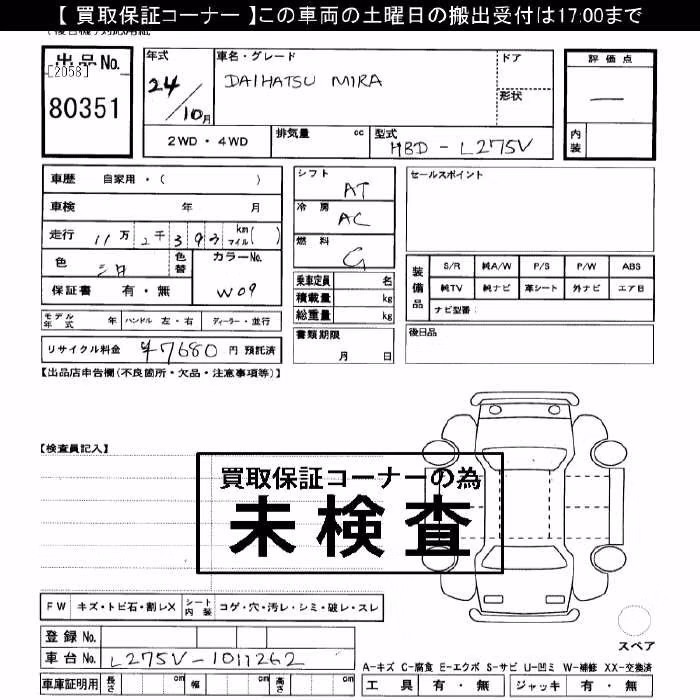 【 買取保証コーナー 】この車両の土曜日の搬出受付は17:00まで
出品No.
[2058]
80351
年式
24/10月
車名・グレード
DAIHATSU MIRA
ドア
形状
評価点
—
内装
2WD・4WD
排気量 cc
型式
HBD-L275V
車歴 自家用・( )
車検 年 月
走行 11万2千393 km マイル( )
色 シロ
色替
カラーNo.
W09
保証書 有・無
モデル年式 年 ハンドル 左・右 ディーラー・並行
リサイクル料金 ¥7680 円 預託済
シフト AT
冷房 AC
燃料 G
乗車定員 名
積載量 kg
総重量 kg
書類期限
月 日
セールスポイント
装備品
S/R 純A/W P/S P/W ABS
純TV 純ナビ 革シート 外ナビ エアB
ナビ型番:
後日品
【出品店申告欄(不良箇所・欠品・注意事項等)】
【検査員記入】
買取保証コーナーの為
未検査
FW キズ・トビ石・割レX シート内装 コゲ・穴・汚レ・シミ・破レ・スレ
登録No.
車台No. L275V-1011262
車庫証明用 長さ cm 幅 cm 高さ cm
スペア
A-キズ C-腐食 E-エクボ S-サビ U-凹ミ W-補修 XX-交換済
工具 有・無 ジャッキ 有・無